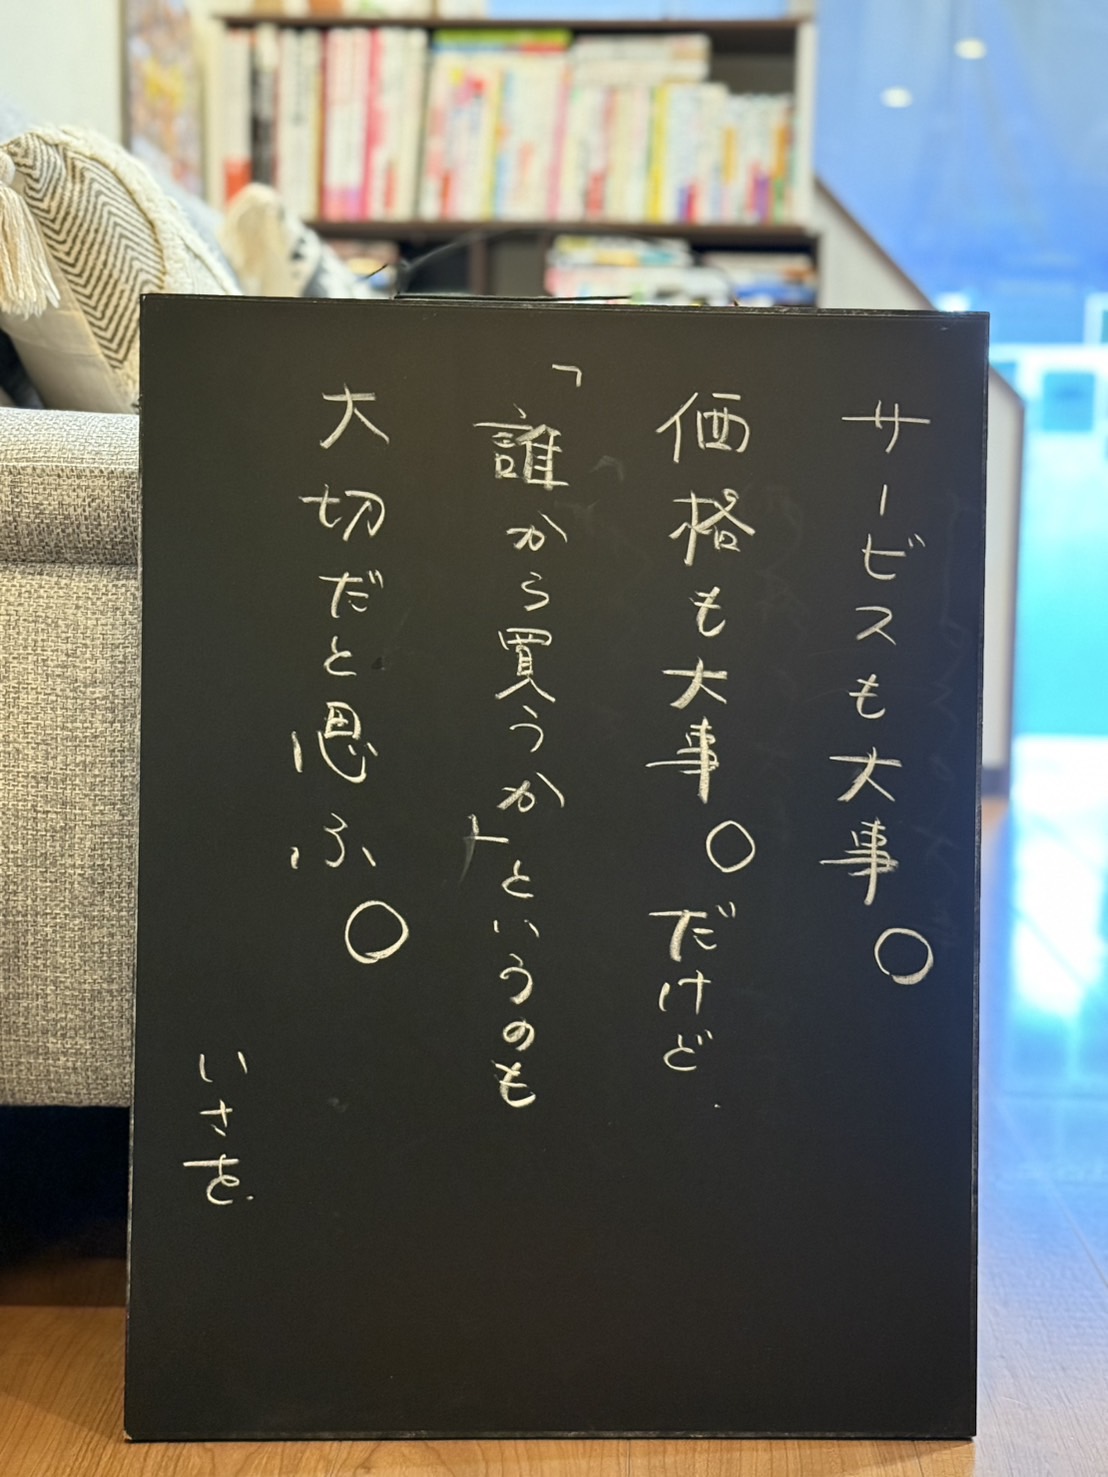 サービスも大事。
価格も大事。だけど
「誰から買うか」というのも
大切だと思ふ。
いさを